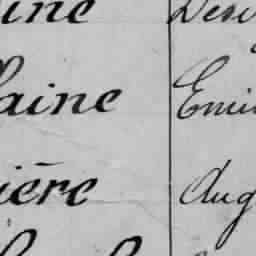 ine Dési
laine Emi
ière Aug